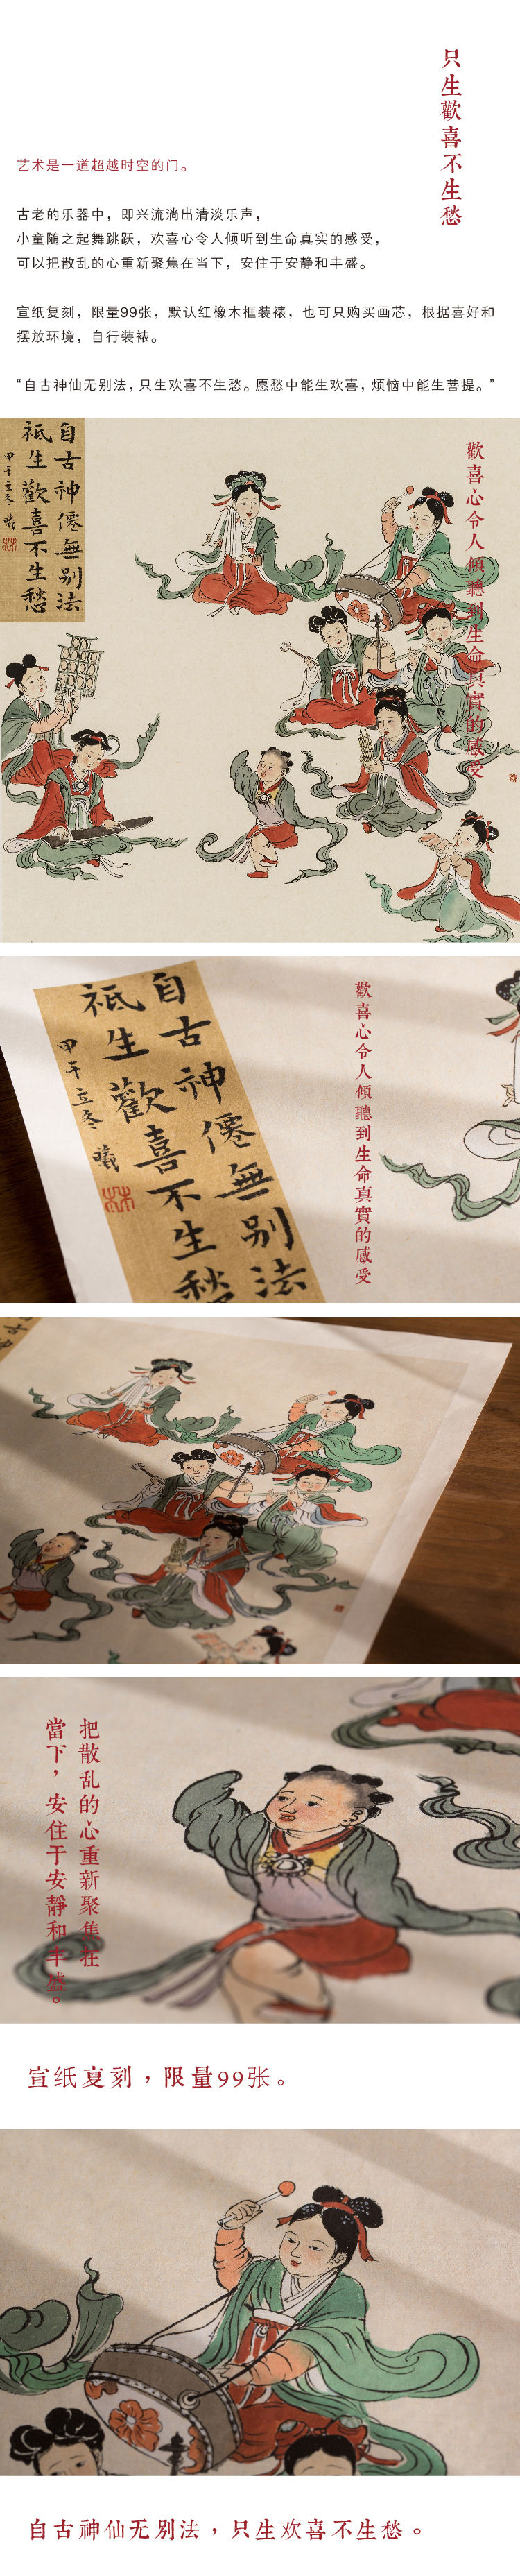 只生歡喜不生愁
艺术是一道超越时空的门。
古老的乐器中，即兴流淌出清淡乐声，
小童随之起舞跳跃，欢喜心令人倾听到生命真实的感受，
可以把散乱的心重新聚焦在当下，安住于安静和丰盛。
宣纸复刻，限量99张，默认红橡木框装裱，也可只购买画芯，根据喜好和
摆放环境，自行装裱。
“自古神仙无别法，只生欢喜不生愁。愿愁中能生欢喜，烦恼中能生菩提。”
自古神僊無别法
祇生歡喜不生愁
甲午立冬 曦
歡喜心令人傾聽到生命真實的感受
自古神僊無别法
祇生歡喜不生愁
甲午立冬 曦
歡喜心令人傾聽到生命真實的感受
把散乱的心重新聚焦在
當下，安住于安靜和丰盛。
宣纸复刻，限量99张。
自古神仙无别法，只生欢喜不生愁。